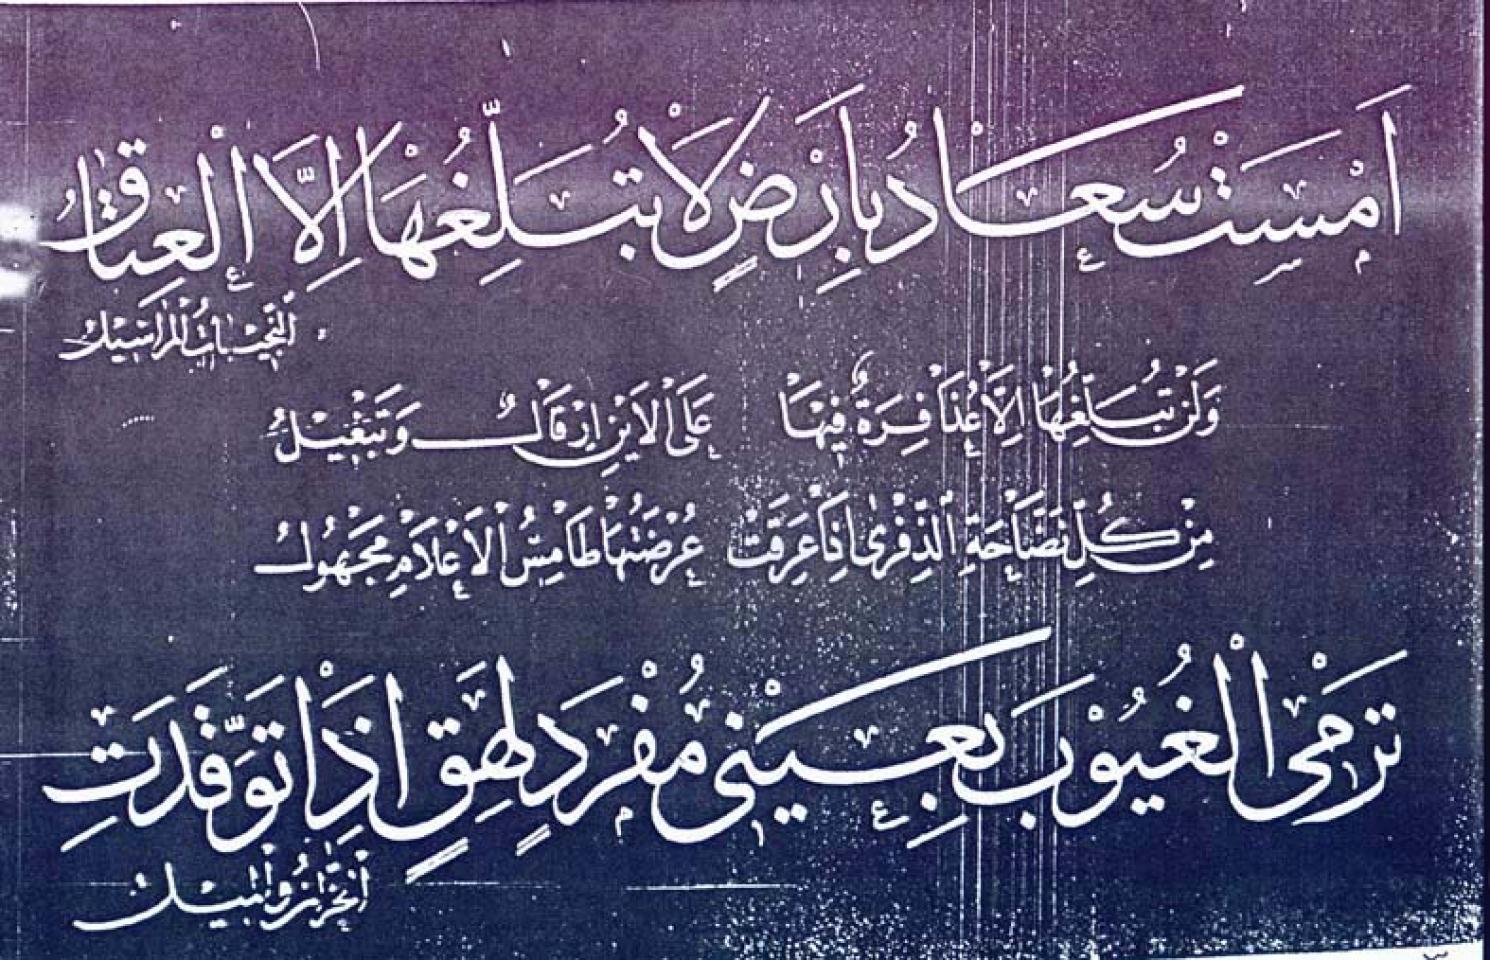 اَمْسَتْ سُعَادُ بِاَرْضٍ لَا تُبَلِّغُهَا اِلَّا الْعِتَاقُ
النَّجِيبَاتُ الْمَرَاسِيلُ
وَلَنْ تُبَلِّغُهَا اِلَّا عُذَافِرَةٌ فِيهَا عَلَى الْاَيْنِ اِرْقَالٌ وَتَبْغِيلُ
مِنْ كُلِّ نَضَّاخَةِ الذِّفْرٰى اِذَا عَرِقَتْ عُرْضَتُهَا طَامِسُ الْاَعْلَامِ مَجْهُولُ
تَرْمِى الْغُيُوبَ بِعَيْنَىْ مُفْرَدٍ لَهِقٍ اِذَا تَوَقَّدَتِ
الْحُزَّازُ وَالْمِيلُ